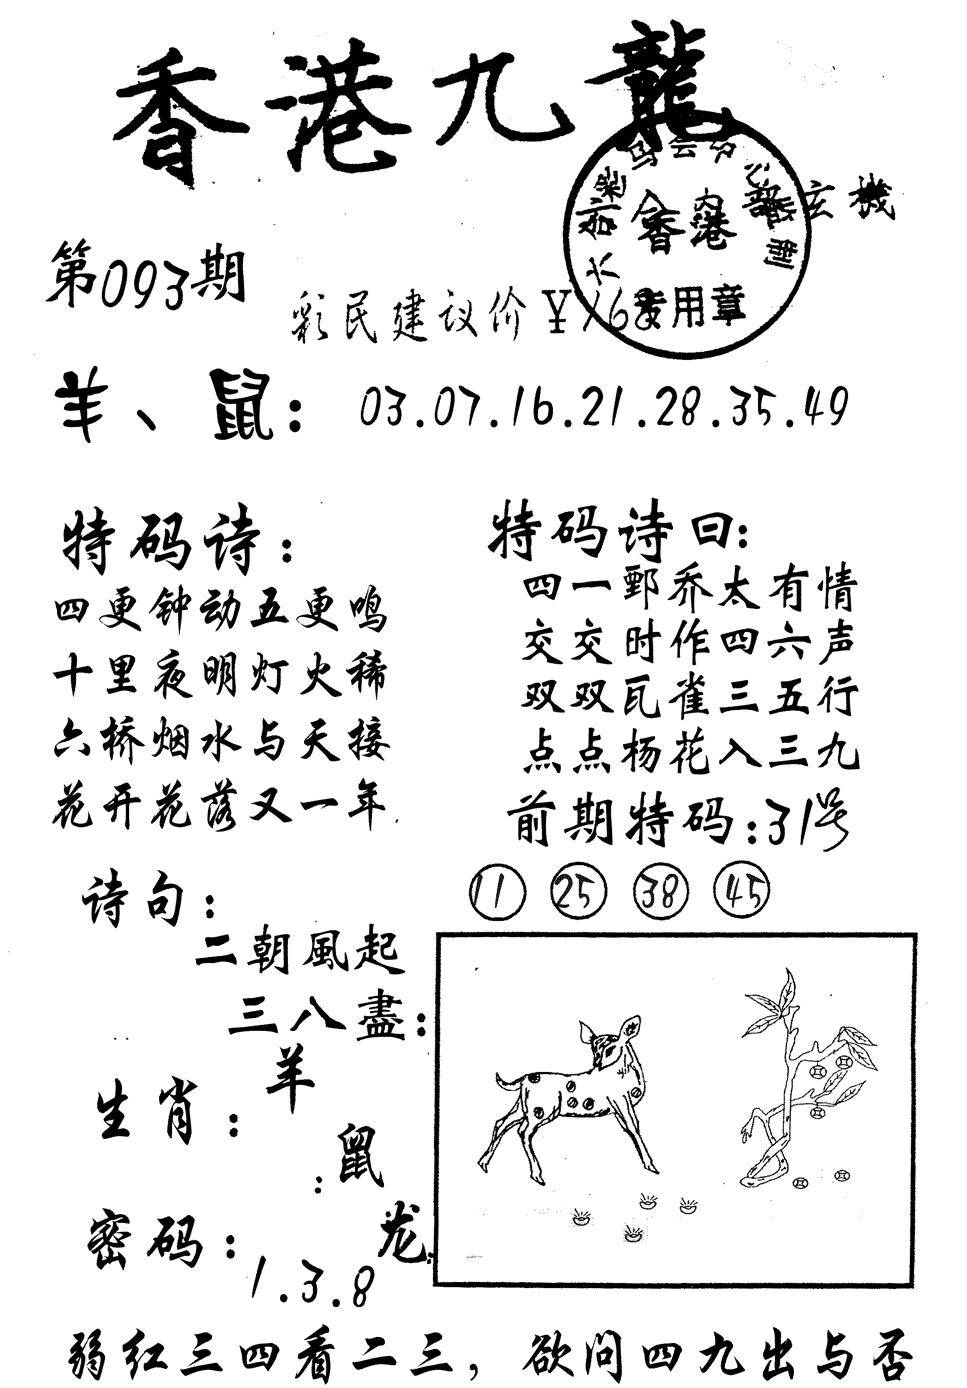 香港九龍
内部玄機
香港
专用章
第093期
彩民建议价¥168
羊、鼠：03.07.16.21.28.35.49
特码诗：
四更钟动五更鸣
十里夜明灯火稀
六桥烟水与天接
花开花落又一年
特码诗曰：
四一鄄乔太有情
交交时作四六声
双双瓦雀三五行
点点杨花入三九
前期特码：31号
11 25 38 45
诗句：
二朝風起
三八盡：
生肖：
羊
鼠
龙
密码：
1.3.8
弱红三四看二三，欲问四九出与否